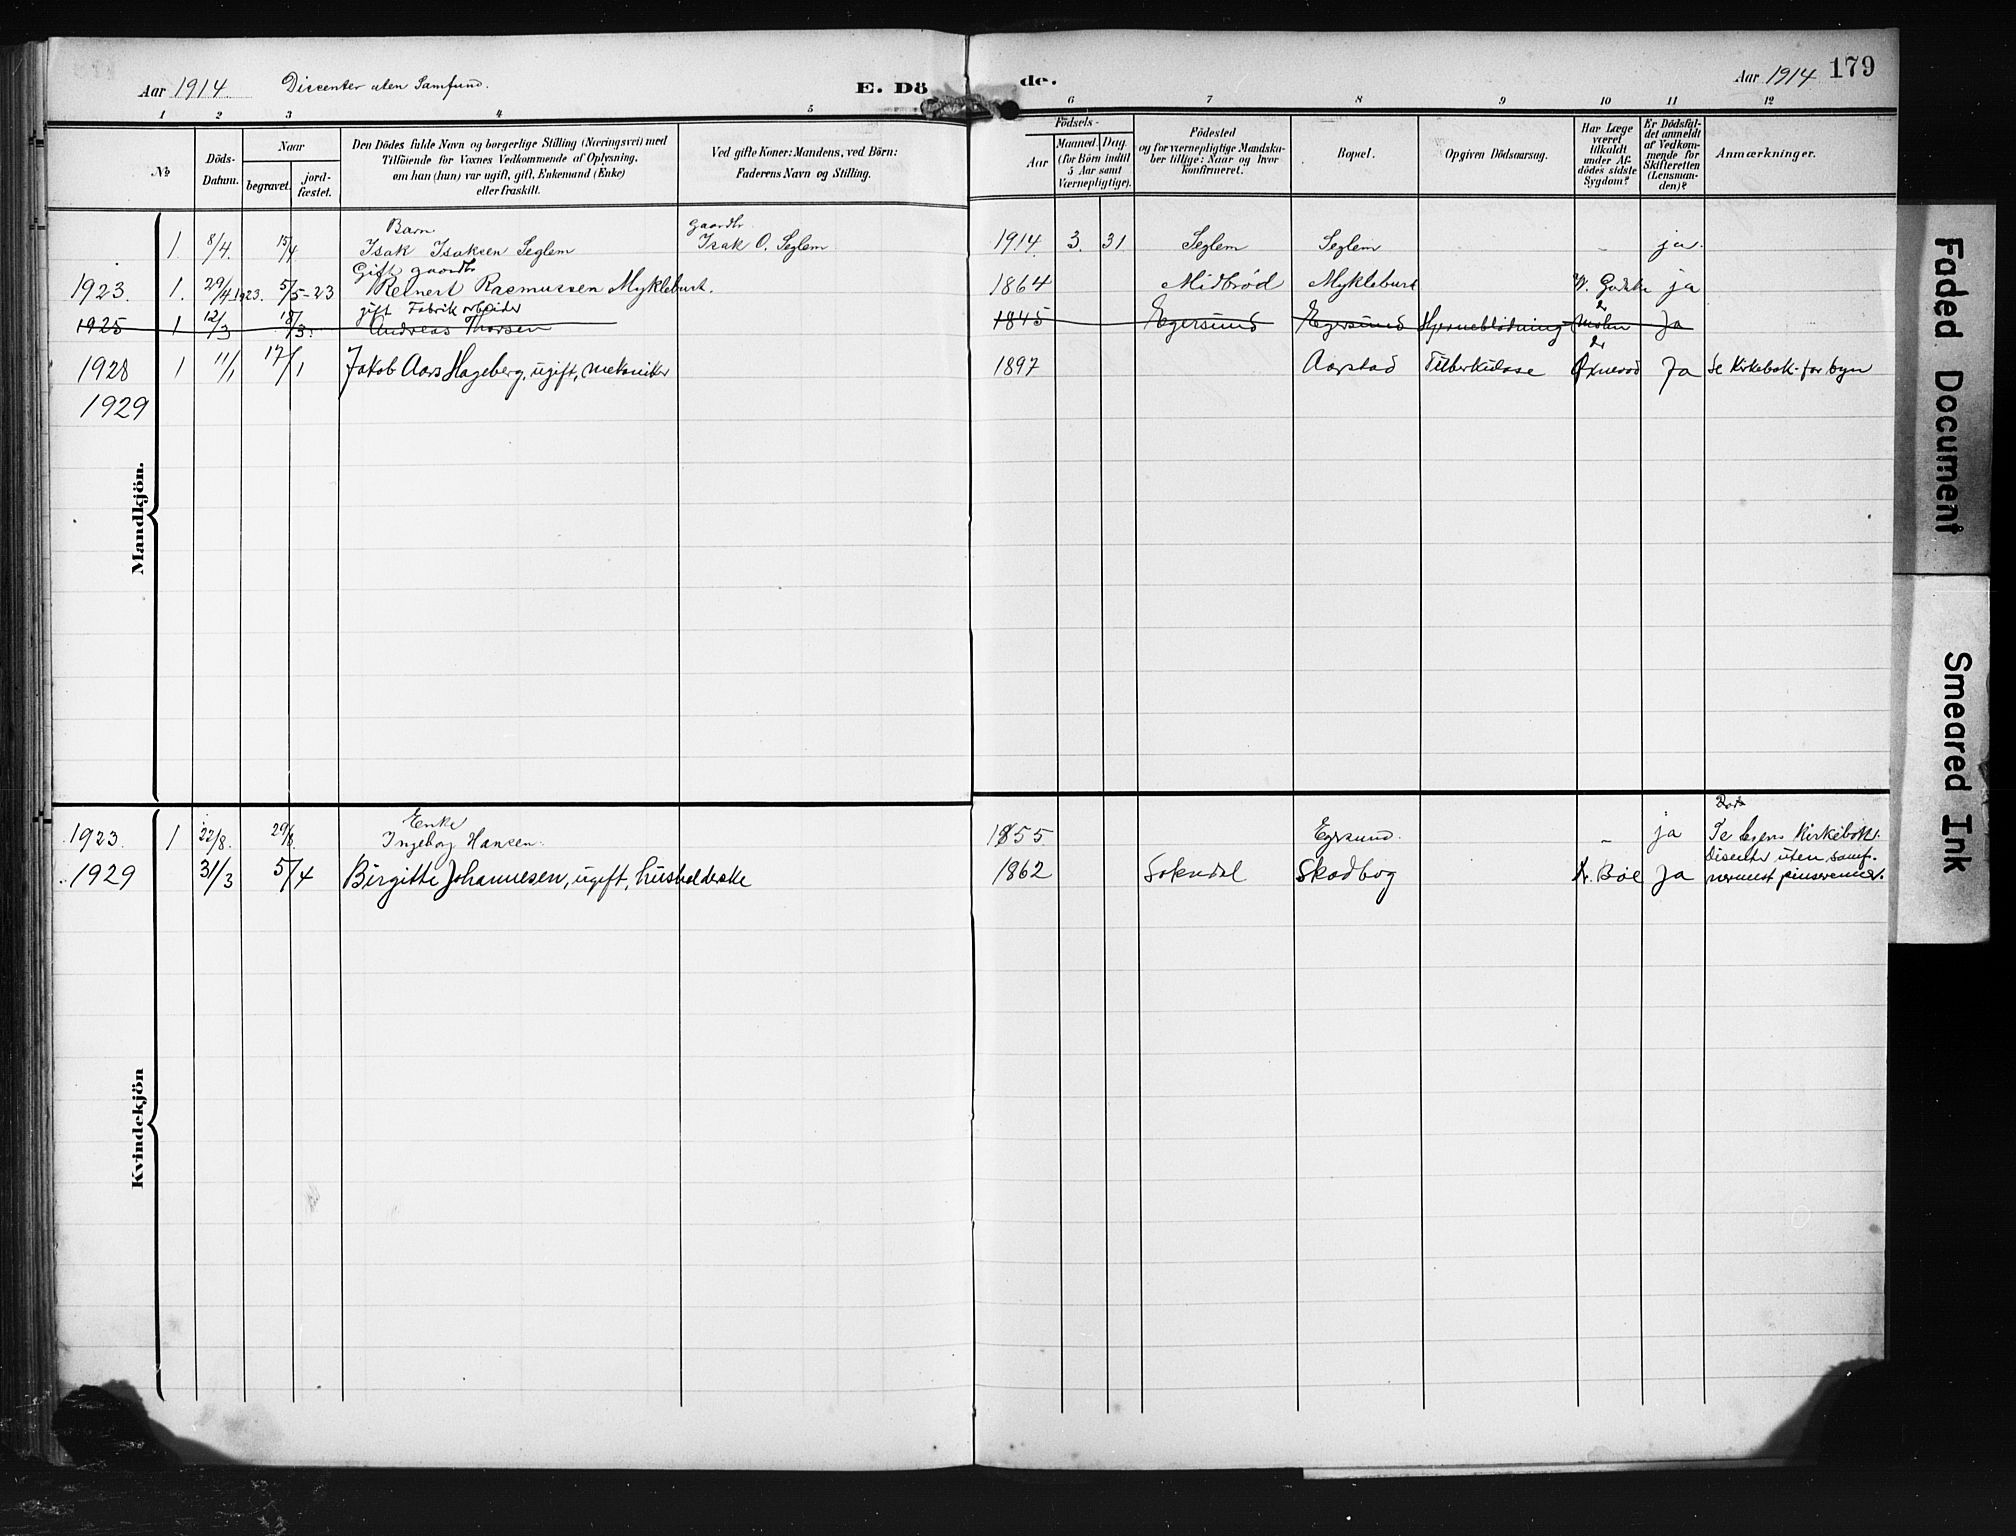 Aar 1914 Discenter uten Samfund. E. Dö de. Aar 1914 179
1 2 3 4 5 6 7 8 9 10 11 12
№ Döds-Datum. Naar begravet. jord-fæstet.
Den Dödes fulde Navn og borgerlige Stilling (Næringsvei) med
Tilföiende for Voxnes Vedkommende af Oplysning,
om han (hun) var ugift, gift, Enkemand (Enke)
eller fraskilt.
Ved gifte Koner: Mandens, ved Börn:
Faderens Navn og Stilling.
Födsels-
Aar Maaned Dag
(for Börn indtil
5 Aar samt
Værnepligtige).
Födested
og for værnepligtige Mandska-
ber tillige: Naar og hvor
konfirmeret.
Bopæl.
Opgiven Dödsaarsag.
Har Læge
været
tilkaldt
under Af-
dödes sidste
Sygdom?
Er Dödsfal-
det anmeldt
af Vedkom-
mende for
Skifteretten
(Lensman-
den)?
Anmærkninger.
Mandkjön.
Barn gaardbr
1 8/4. 15/4 Isak Isaksen Seglem Isak O. Seglem 1914 3 31 Seglem Seglem - ja.
Gift gaardbr
1923. 1. 29/4 1923. 5/5-23 Reinert Rasmussen Myklebust. 1864 Midbrød Myklebust ja
gift Fabrik arbeider
1925 1 12/3 18/3. Andreas Thorsen 1845 Egersund Egersund Hjerneblödning Ja
1928 1 11/1 17/1 Jakob Aars Hageberg, ugift, mekaniker 1897 Aarstad Tuberkulose Ja Se Kirkebok for byen
1929
Kvindekjön
Enke
1923 1 22/8. 29/8 Ingeborg Hansen. 1855 Egersund. - ja Se byens Kirkebok.
Disenter uten samf.
1929 31/3 5/4 Birgitte Johannesen, ugift, husholderske 1862 Sokndal Skadbog Dr. Bøe Ja nærmest pinsevenner.
Faded Document
Smeared Ink